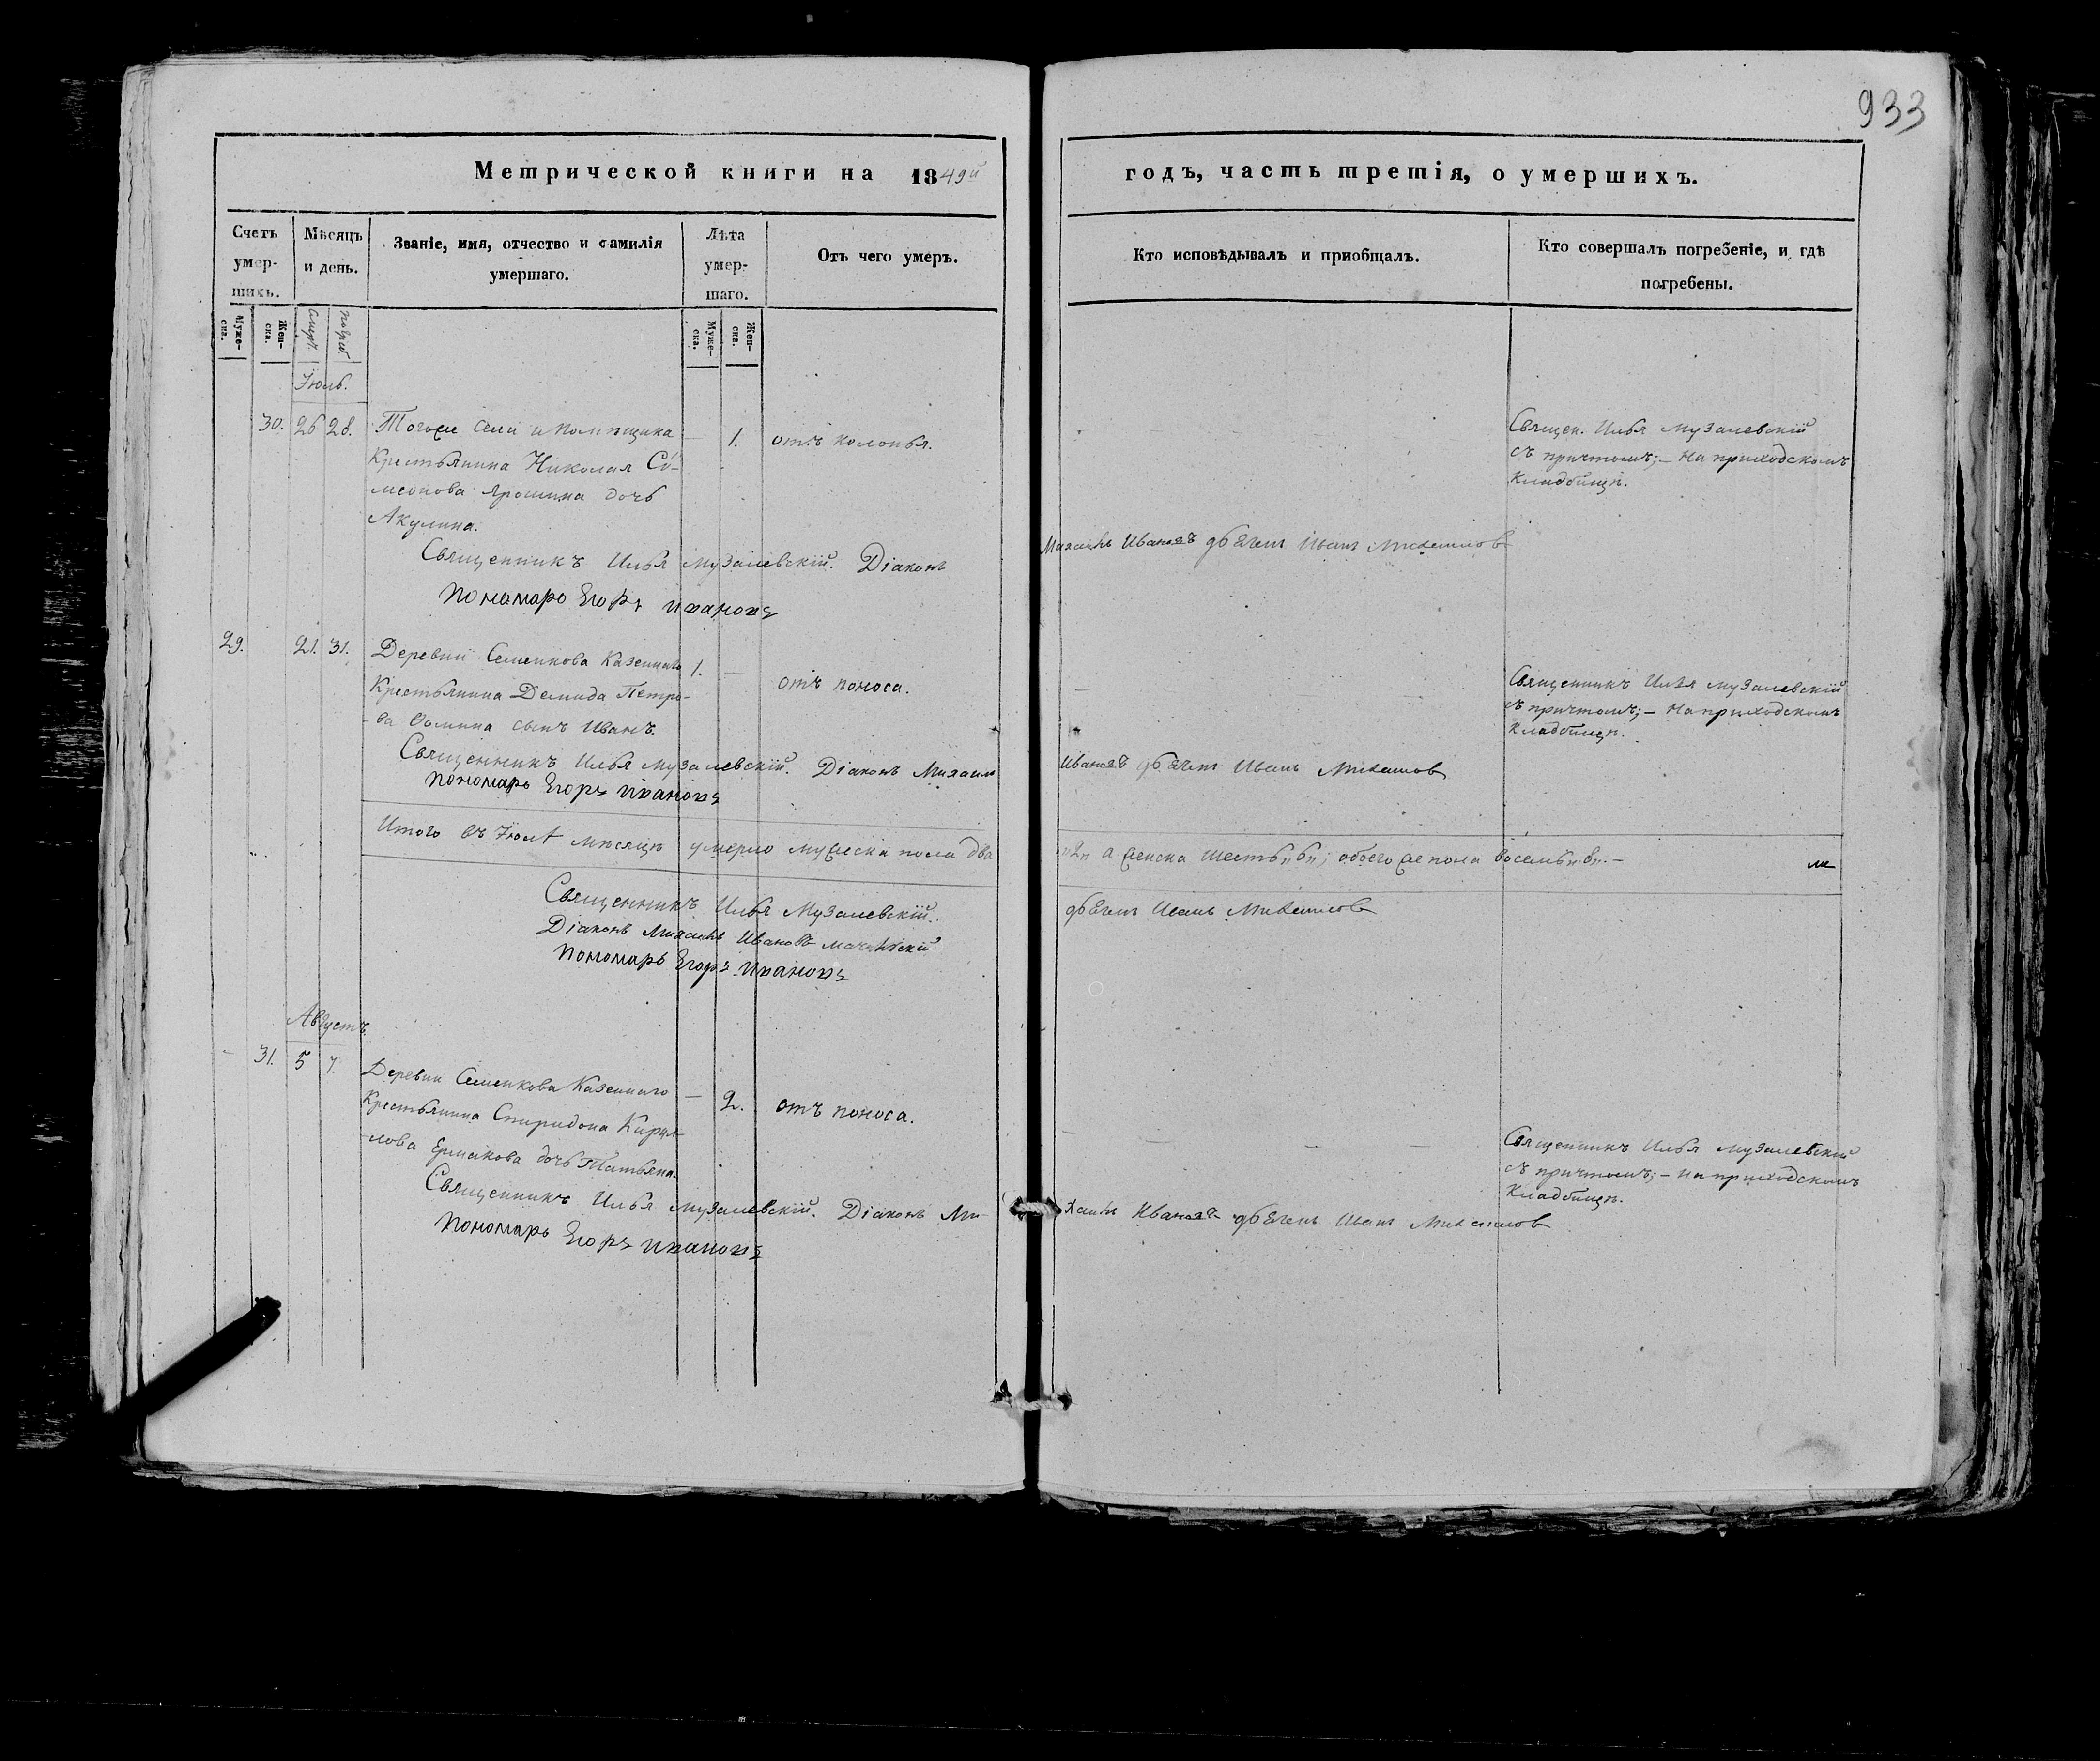 933
Метрической книги на 1849й
годъ, часть третія, о умершихъ.
Счетъ умер-шихъ.
Мѣсяцъ и день.
Званіе, имя, отчество и фамилія умершаго.
Лѣта умер-шаго.
Отъ чего умеръ.
Кто исповѣдывалъ и пріобщалъ.
Кто совершалъ погребеніе, и гдѣ погребены.
Муже-ска.
Жен-ска.
Смерт.
Погреб.
Муже-ска.
Жен-ска.
Іюль.
30. 26 28. Тогоже села и помѣщика — 1. отъ колотья.
Крестьянина Николая Си-
меонова дочь
Акулина.
Священ. Илья Музалевскій
съ причтомъ; – на приходскомъ
кладбищѣ.
Священникъ Илья Музалевскій. Діаконъ
Михаилъ Ивановъ дьячекъ Иванъ Михаиловъ
пономарь Егоръ Ивановъ
29. 21. 31. Деревни Семенкова казеннаго 1. — отъ поноса.
Крестьянина Демида Петро-
ва Фомина сынъ Иванъ.
Священникъ Илья Музалевскій
съ причтомъ; – на приходскомъ
кладбищѣ.
Священникъ Илья Музалевскій. Діаконъ Михаилъ
Ивановъ дьячекъ Иванъ Михаиловъ
пономарь Егоръ Ивановъ
Итого въ Іюлѣ мѣсяцѣ умерло мужеска пола два
„2„ а женска шесть „6„; обоего же пола восемь „8„. –
Священникъ Илья Музалевскій.
дьячекъ Иванъ Михаиловъ
Діаконъ Михаилъ Ивановъ
пономарь Егоръ Ивановъ
Августъ.
– 31. 5 7. Деревни Семенкова казеннаго — 2. отъ поноса.
Крестьянина Спиридона Кирил-
лова Ермакова дочь Татьяна.
Священникъ Илья Музалевскій
съ причтомъ; – на приходскомъ
кладбищѣ.
Священникъ Илья Музалевскій. Діаконъ Ми-
хаилъ Ивановъ дьячекъ Иванъ Михаиловъ
пономарь Егоръ Ивановъ